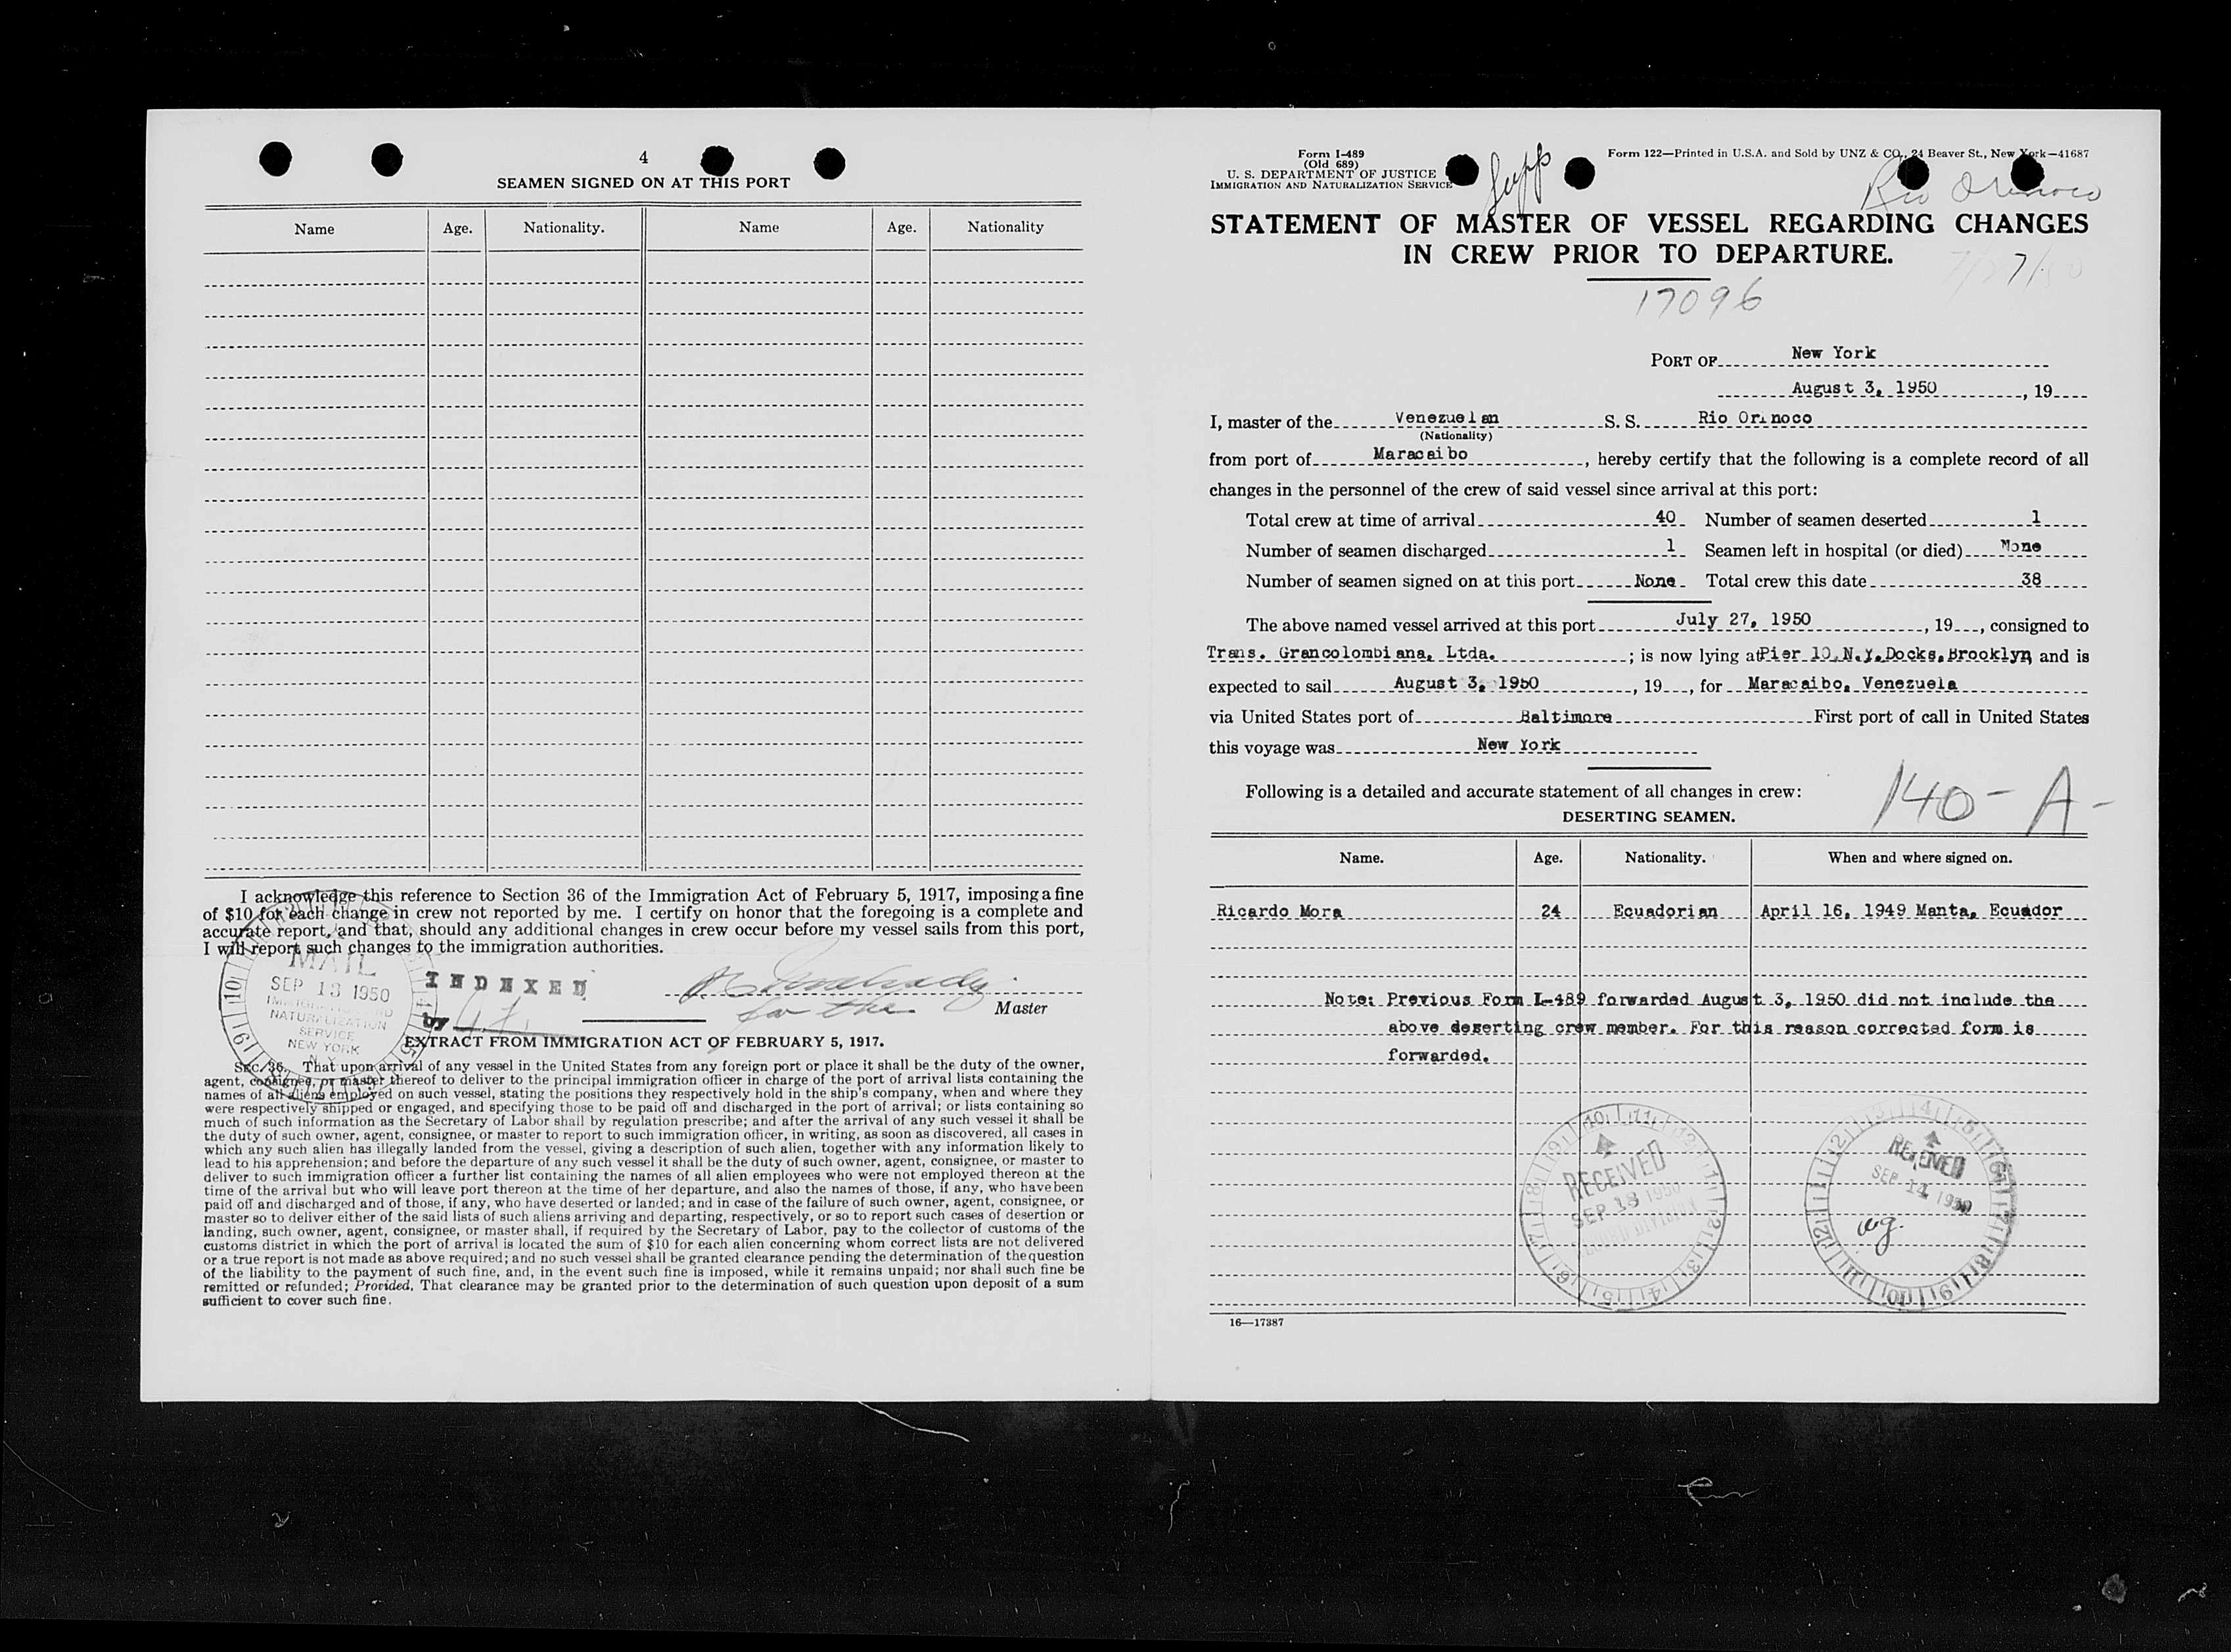 4
SEAMEN SIGNED ON AT THIS PORT
Name Age. Nationality. Name Age. Nationality
I acknowledge this reference to Section 36 of the Immigration Act of February 5, 1917, imposing a fine
of $10 for each change in crew not reported by me. I certify on honor that the foregoing is a complete and
accurate report, and that, should any additional changes in crew occur before my vessel sails from this port,
I will report such changes to the immigration authorities.
MAIL
SEP 13 1950
NATURALIZATION
SERVICE
NEW YORK
N. Y.
INDEXED
by
for the
Master
EXTRACT FROM IMMIGRATION ACT OF FEBRUARY 5, 1917.
SEC. 36. That upon arrival of any vessel in the United States from any foreign port or place it shall be the duty of the owner,
agent, consignee, or master thereof to deliver to the principal immigration officer in charge of the port of arrival lists containing the
names of all aliens employed on such vessel, stating the positions they respectively hold in the ship's company, when and where they
were respectively shipped or engaged, and specifying those to be paid off and discharged in the port of arrival; or lists containing so
much of such information as the Secretary of Labor shall by regulation prescribe; and after the arrival of any such vessel it shall be
the duty of such owner, agent, consignee, or master to report to such immigration officer, in writing, as soon as discovered, all cases in
which any such alien has illegally landed from the vessel, giving a description of such alien, together with any information likely to
lead to his apprehension; and before the departure of any such vessel it shall be the duty of such owner, agent, consignee, or master to
deliver to such immigration officer a further list containing the names of all alien employees who were not employed thereon at the
time of the arrival but who will leave port thereon at the time of her departure, and also the names of those, if any, who have been
paid off and discharged and of those, if any, who have deserted or landed; and in case of the failure of such owner, agent, consignee, or
master so to deliver either of the said lists of such aliens arriving and departing, respectively, or so to report such cases of desertion or
landing, such owner, agent, consignee, or master shall, if required by the Secretary of Labor, pay to the collector of customs of the
customs district in which the port of arrival is located the sum of $10 for each alien concerning whom correct lists are not delivered
or a true report is not made as above required; and no such vessel shall be granted clearance pending the determination of the question
of the liability to the payment of such fine, and, in the event such fine is imposed, while it remains unpaid; nor shall such fine be
remitted or refunded; Provided, That clearance may be granted prior to the determination of such question upon deposit of a sum
sufficient to cover such fine.
Form I-489
(Old 689)
U. S. DEPARTMENT OF JUSTICE
IMMIGRATION AND NATURALIZATION SERVICE
Supp
Form 122—Printed in U.S.A. and Sold by UNZ & CO., 24 Beaver St., New York—41687
Rio Orinoco
STATEMENT OF MASTER OF VESSEL REGARDING CHANGES
IN CREW PRIOR TO DEPARTURE.
7/27/50
17096
PORT OF New York
August 3, 1950, 19
I, master of the Venezuelan S. S. Rio Orinoco
(Nationality)
from port of Maracaibo, hereby certify that the following is a complete record of all
changes in the personnel of the crew of said vessel since arrival at this port:
Total crew at time of arrival 40 Number of seamen deserted 1
Number of seamen discharged 1 Seamen left in hospital (or died) None
Number of seamen signed on at this port None Total crew this date 38
The above named vessel arrived at this port July 27, 1950, 19, consigned to
Trans. Grancolombiana, Ltda. ; is now lying at Pier 10, N.Y.Docks,Brooklyn and is
expected to sail August 3, 1950, 19, for Maracaibo, Venezuela
via United States port of Baltimore First port of call in United States
this voyage was New York
Following is a detailed and accurate statement of all changes in crew:
140-A-
DESERTING SEAMEN.
Name. Age. Nationality. When and where signed on.
Ricardo Mora 24 Ecuadorian April 16, 1949 Manta, Ecuador
Note: Previous Form I-489 forwarded August 3, 1950 did not include the
above deserting crew member. For this reason corrected form is
forwarded.
RECEIVED
SEP 18 1950
RECEIVED
SEP 14 1950
16—17387